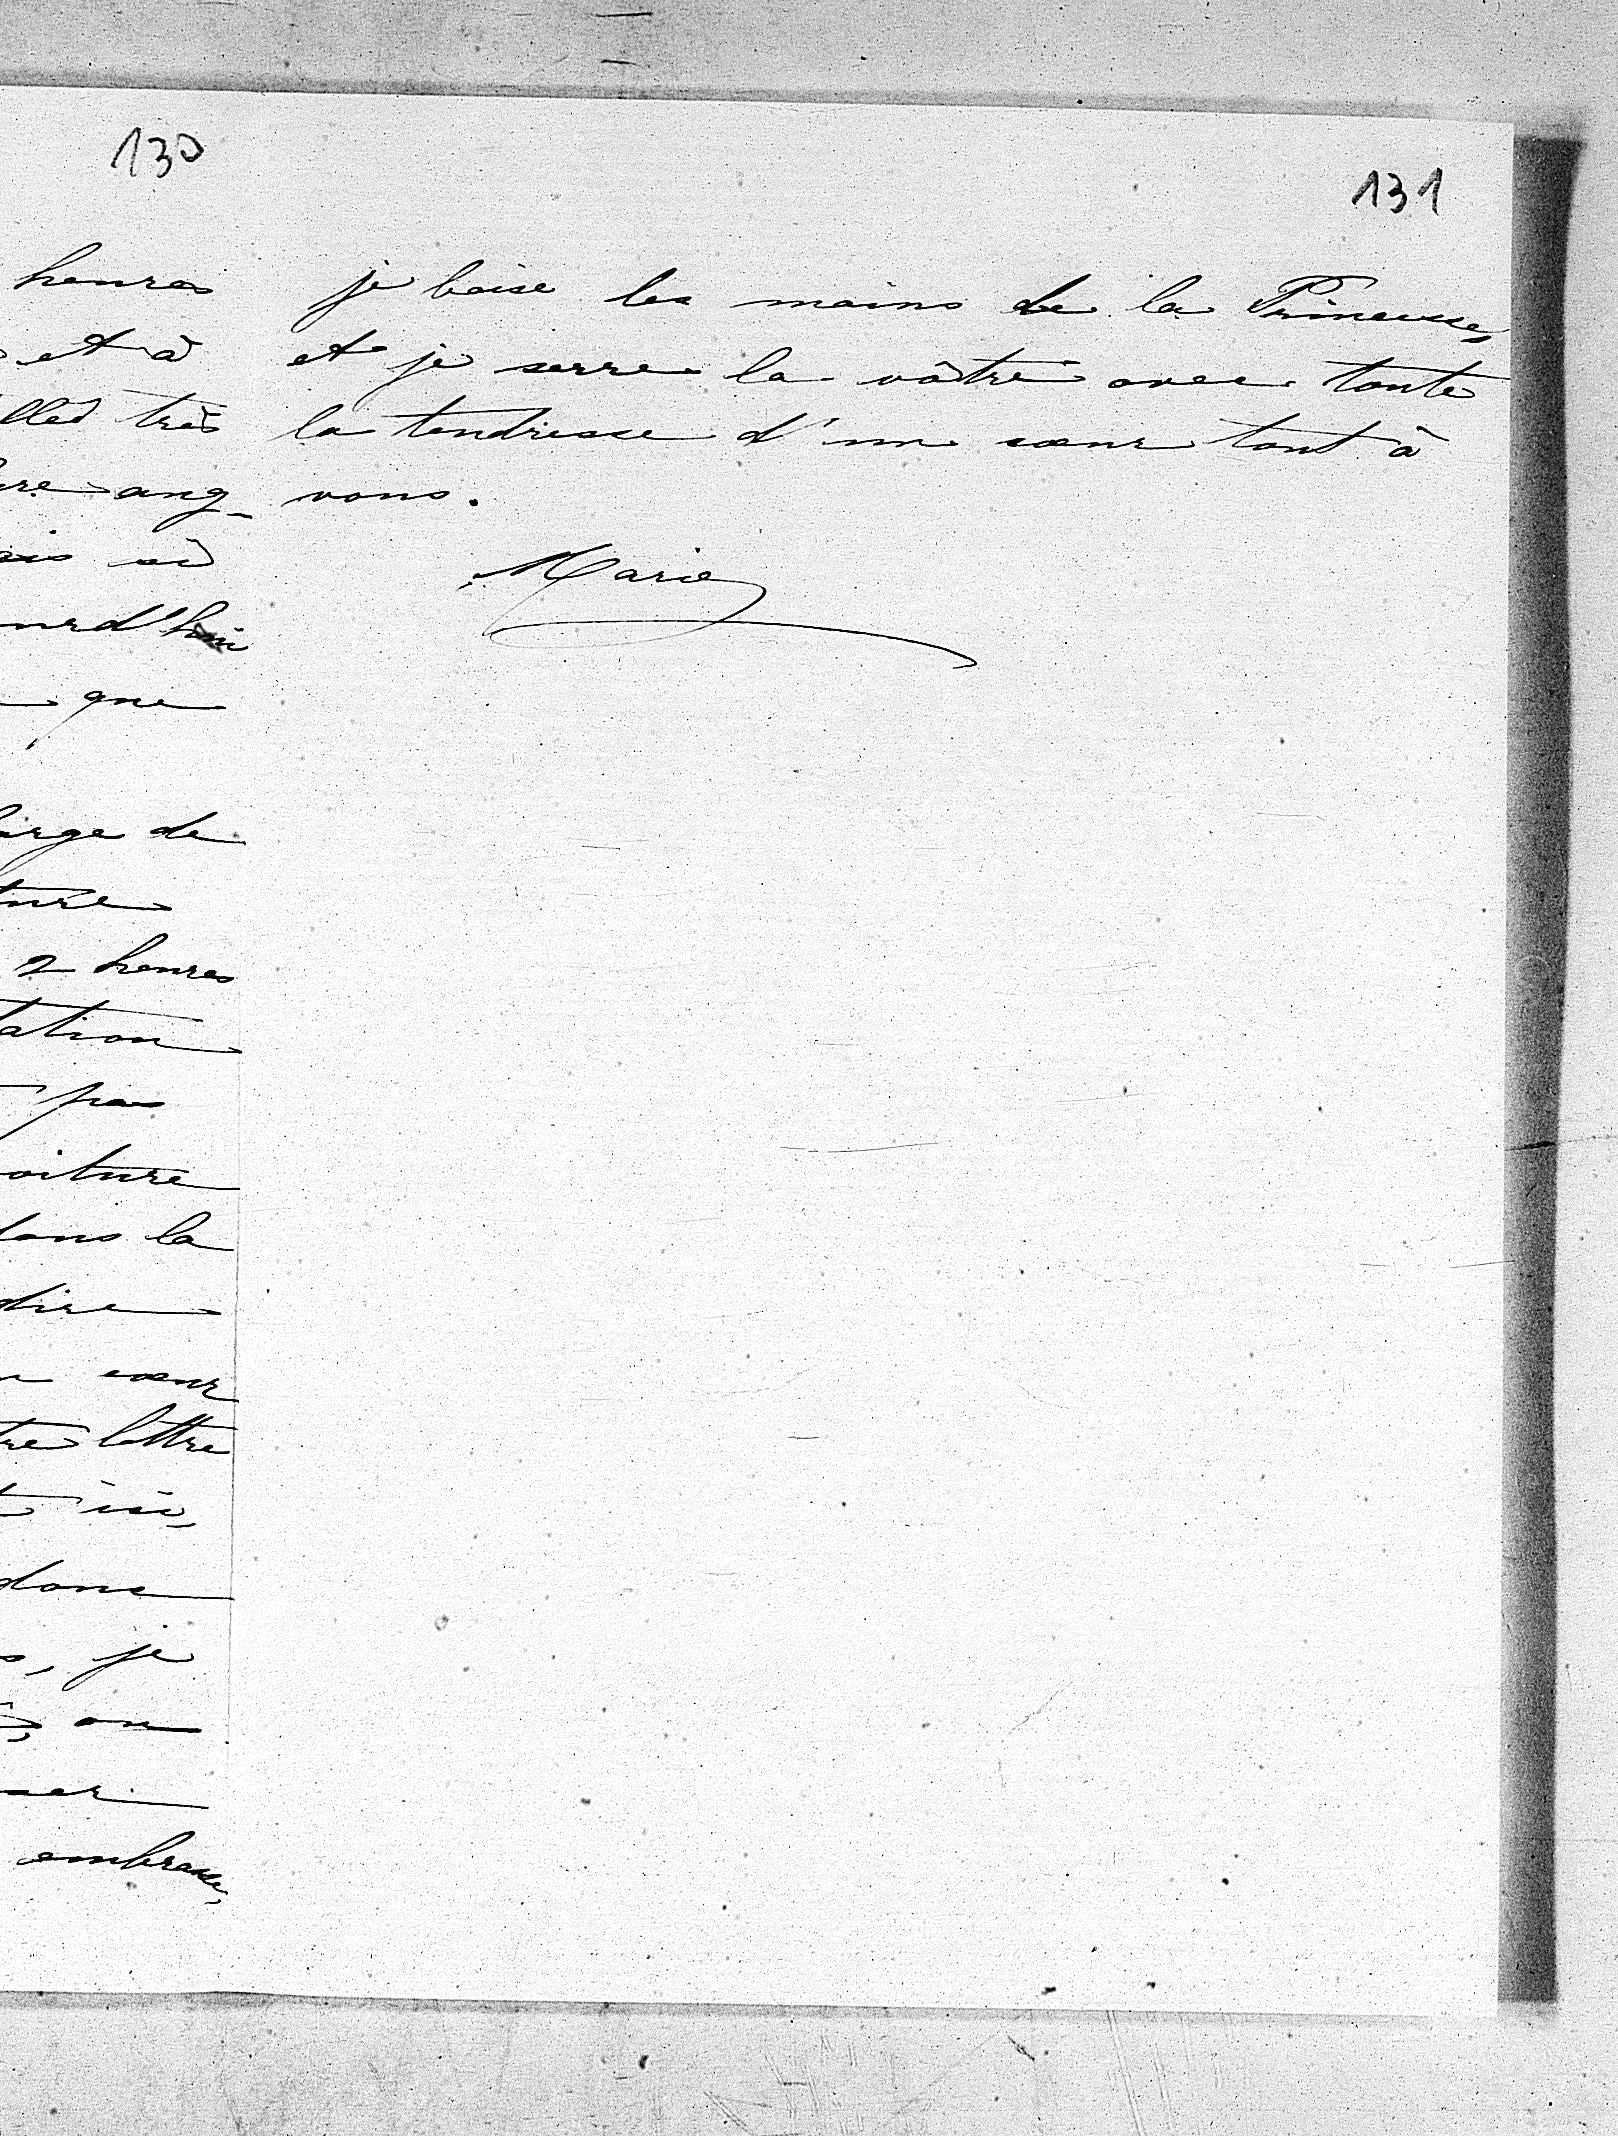 130
heures
et à
lled très
ure ang-
ais où
ourd'hui
que
large de
ture
2 heures
tation
pas
oiture
dans la
dire
n coeur
tre lettre
t ici,
donc
s, je
on
mer
embrasse,
131
je baise les mains de la Princesse,
et je serre la vôtre avec toute
la tendresse d'un coeur tout à
vous.
Marie